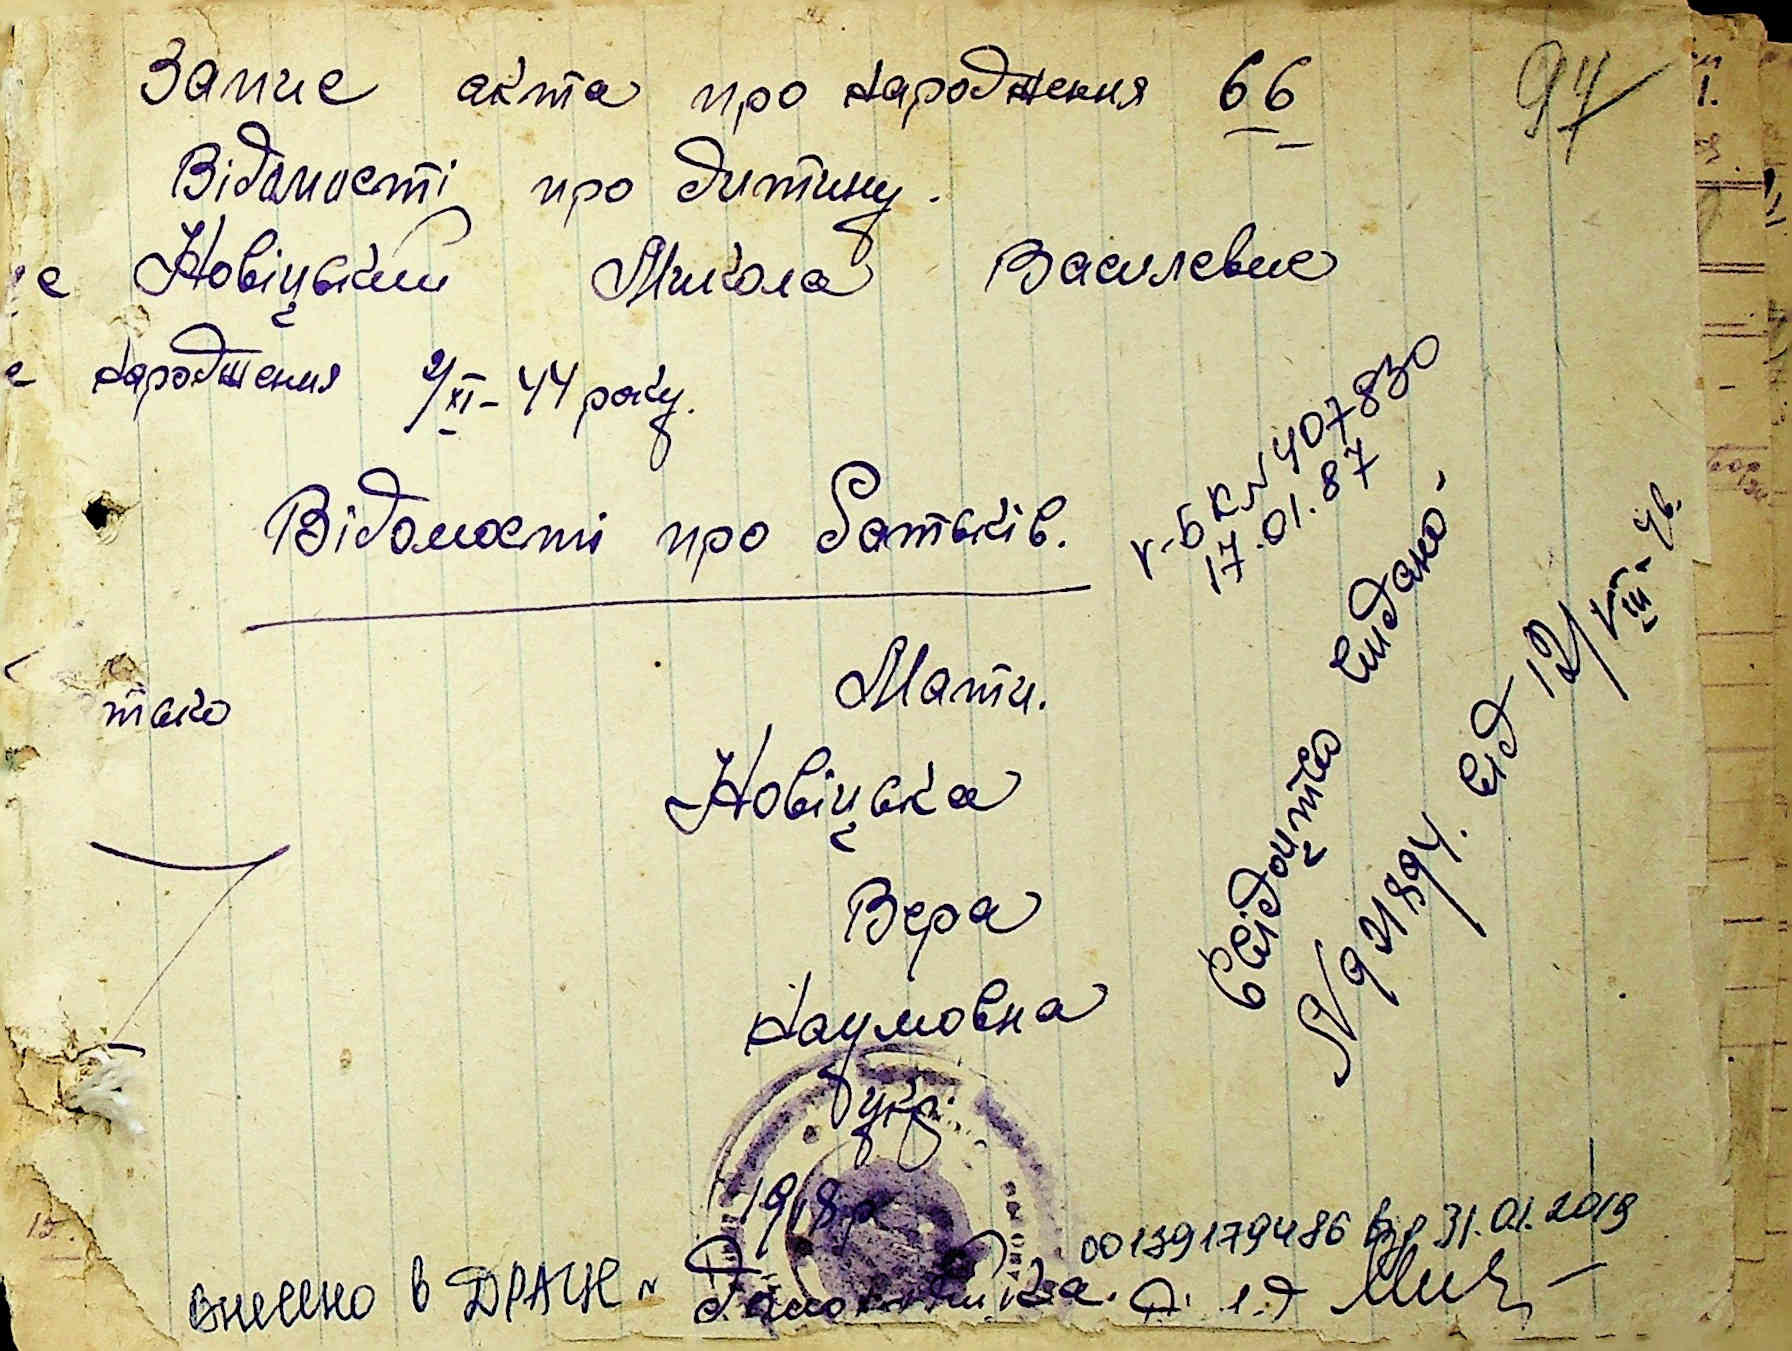 Запис акта про народження 66
97
Відомості про дитину.
Новіцький Микола Василевич
народження 2/XI-44 року.
Відомості про батьків.
тько
Мати.
Новіцька
Вера
Наумовна
укр.
1918р
Домохазяйка.
V-БК N 407830
17.01.87
Свідоцтво видано
N 921894. від 12/VIII-46.
внесено в ДРАЦС N 00139179486 від 31.01.2019